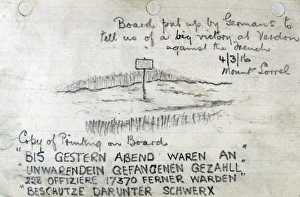 Board put up by Germans to
tell us of a big victory at Verdon
against the French
4/3/16
Mount Sorrel
Copy of Printing on Board
"BIS GESTERN ABEND WAREN AN"
"UNWARENDEIN GEFANGENEN GEZAHLL"
"228 OFFIZIERE 17370 FERNER WARDEN"
"BESCHUTZE DARUNTER SCHWERX"